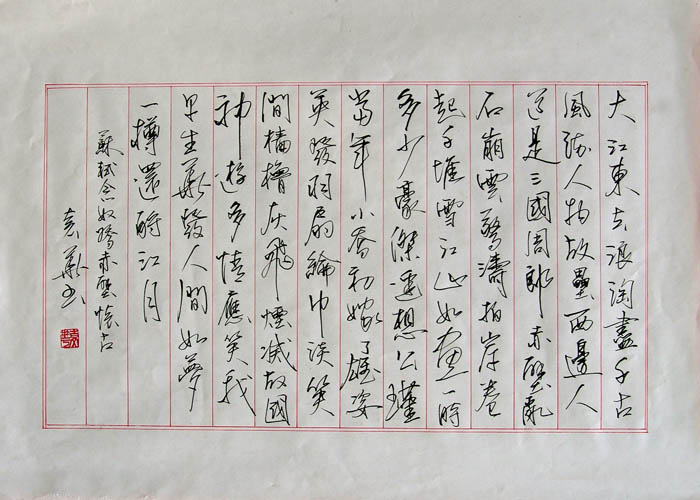 大江東去浪淘盡千古
風流人物故壘西邊人
道是三國周郎赤壁亂
石崩雲驚濤拍岸卷
起千堆雪江山如畫一時
多少豪傑遙想公瑾
當年小喬初嫁了雄姿
英發羽扇綸巾談笑
間檣櫓灰飛煙滅故國
神遊多情應笑我
早生華發人間如夢
一樽還酹江月
蘇軾念奴嬌赤壁懷古